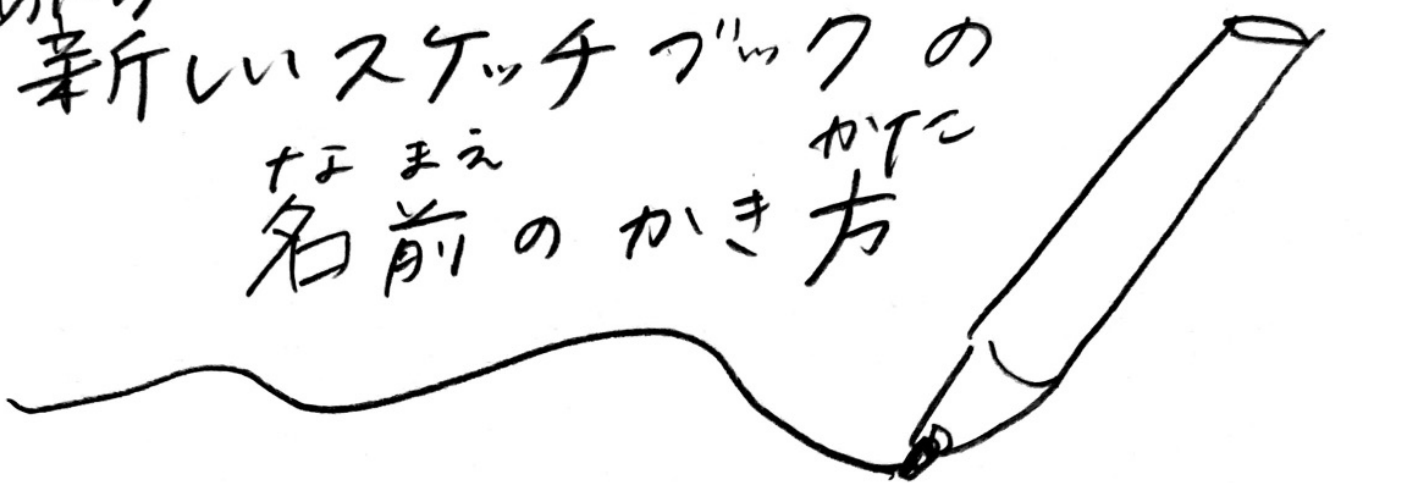 新しいスケッチブックの
なまえ かた
名前のかき方